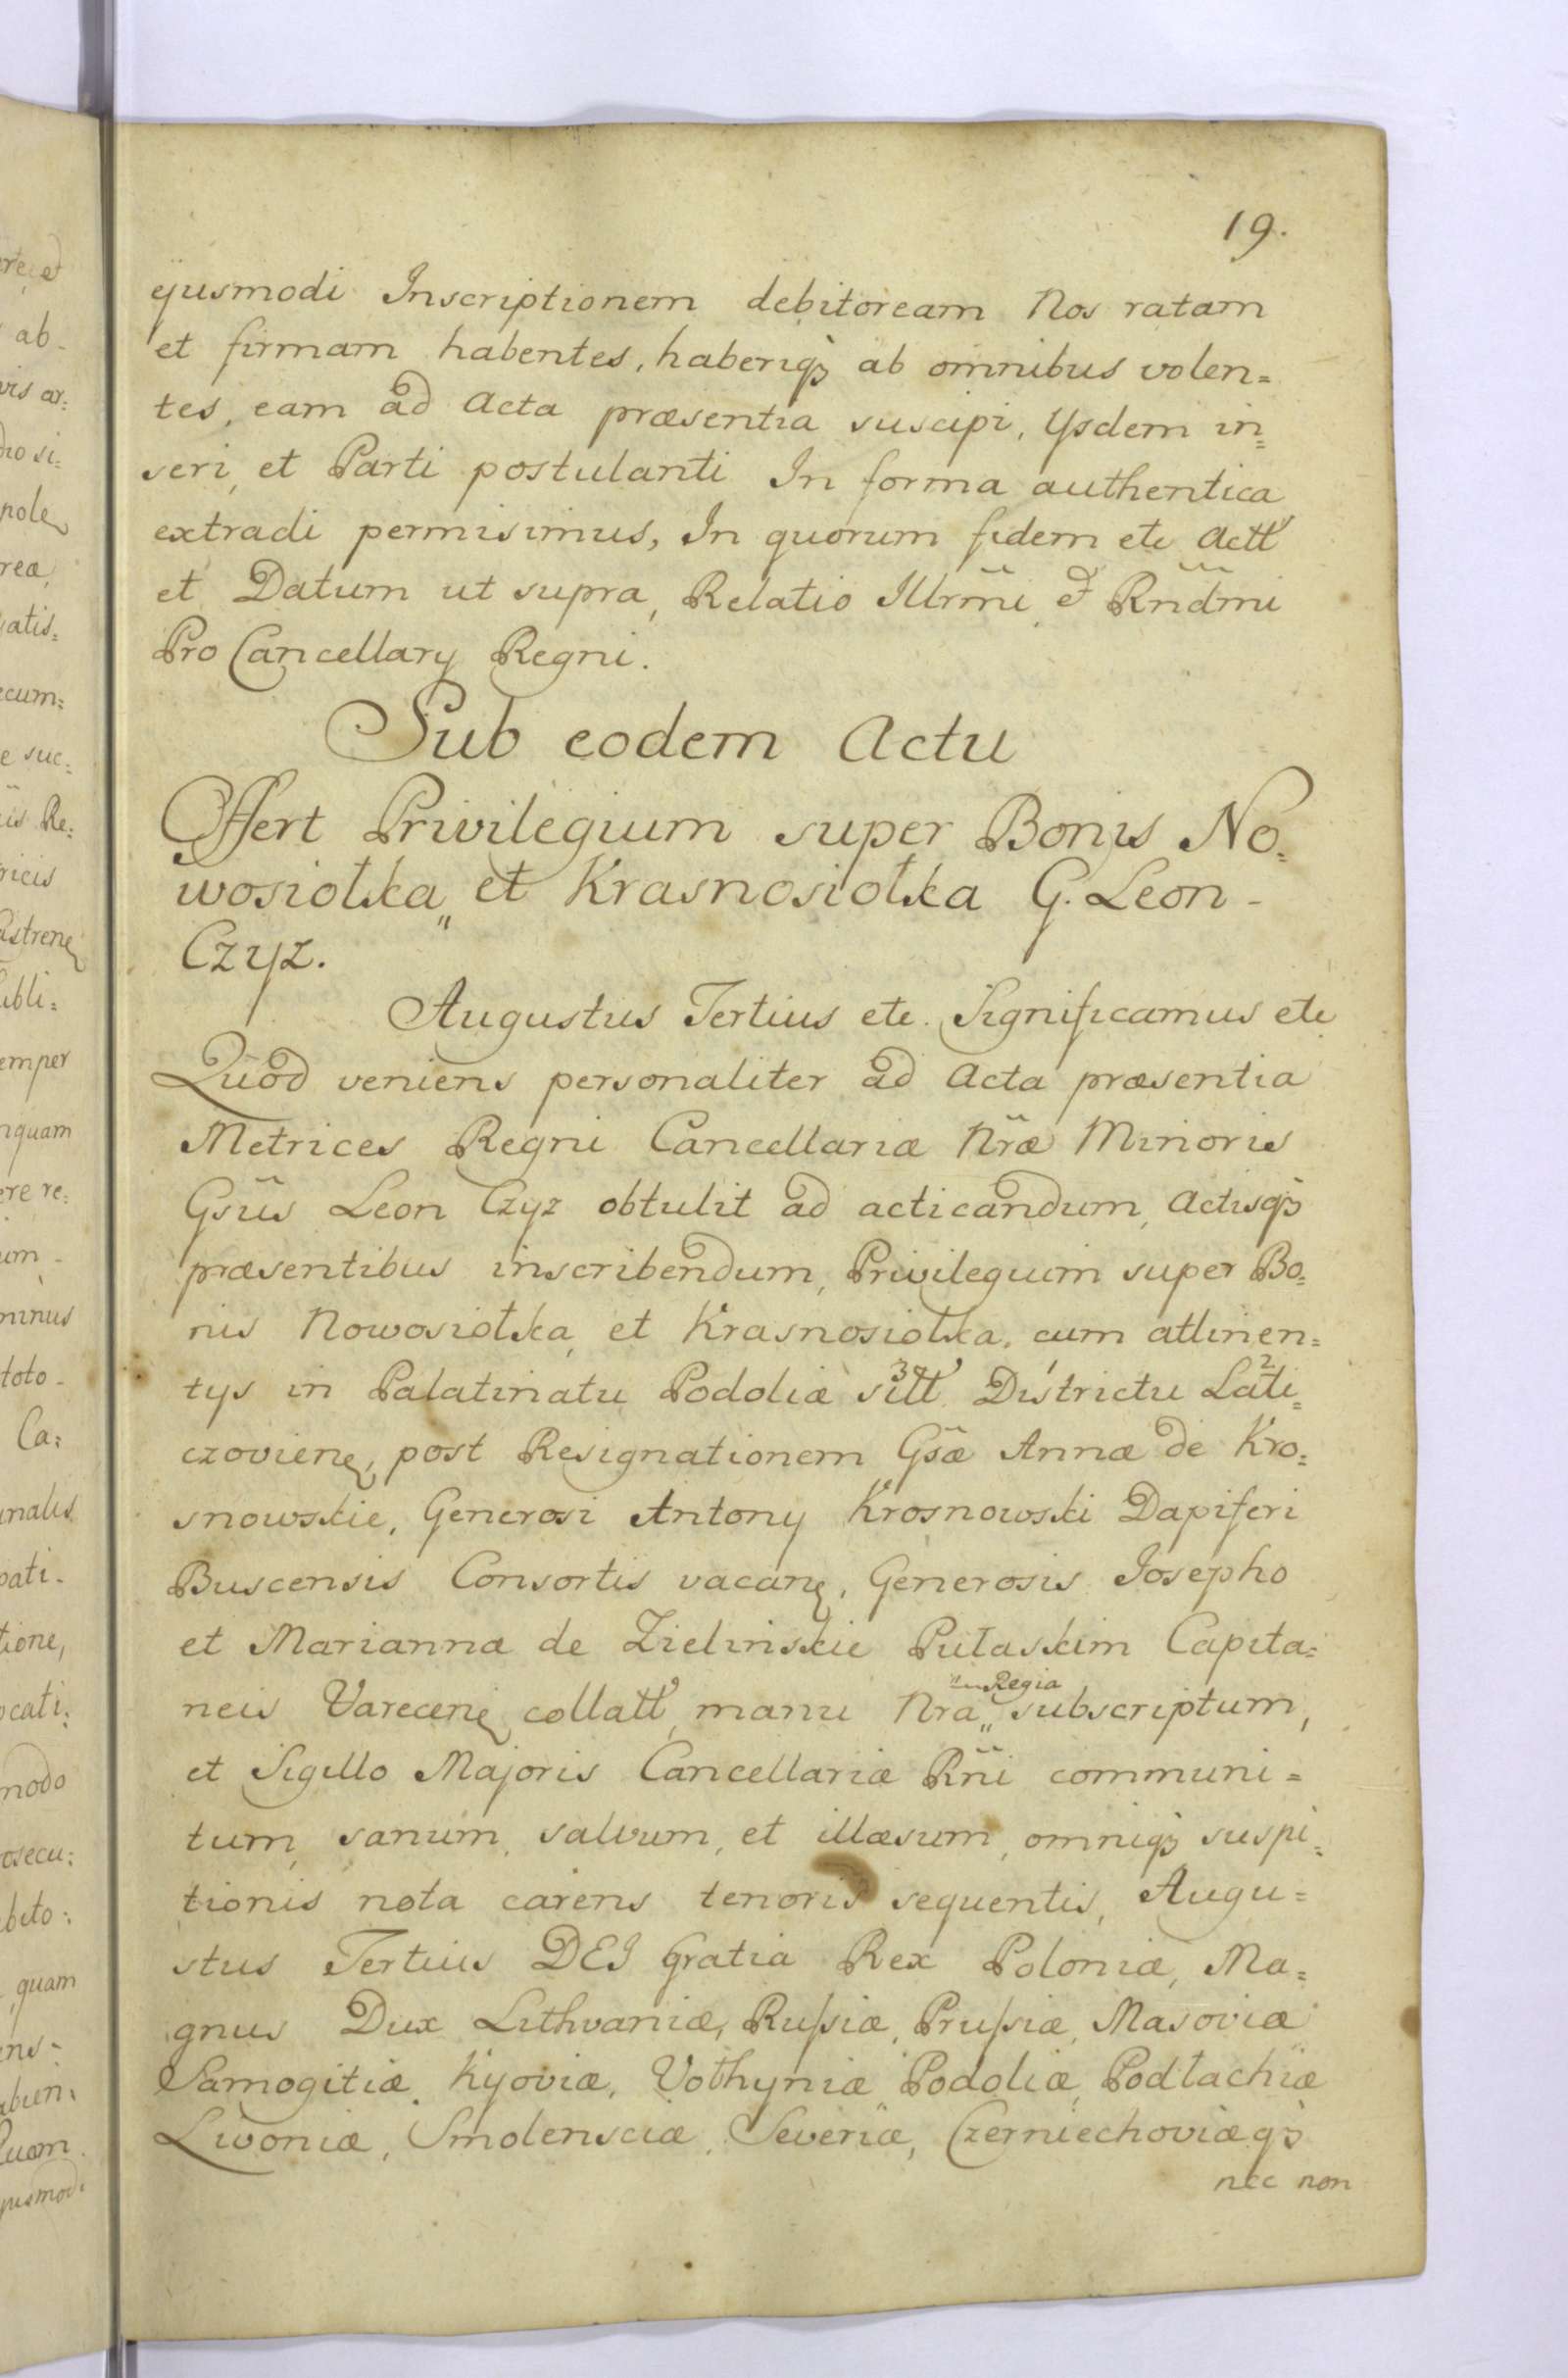 19.
ejusmodi Inscriptionem debitoream Nos ratam
et firmam habentes, haberiq3 ab omnibus volen=
tes, eam ad Acta præsentia suscipi, ysdem in=
seri, et Parti postulanti In forma authentica
extradi permisimus, In quorum fidem etc Actt
et Datum ut supra, Relatio Illrm̃i et Rndm̃i
Pro Cancellary Regni.
Sub eodem Actu
Offert Privilegium super Bonis No=
wosiołka et Krasnosiołka G. Leon -
Czyz.
Augustus Tertius etc. Significamus etc
Quod veniens personaliter ad Acta præsentia
Metrices Regni Cancellariæ Nr̃æ Minoris
Gsũs Leon Czyz obtulit ad acticandum, Actisq3
præsentibus inscribendum, Privilegium super Bo=
nis Nowosiołka et Krasnosiołka, cum attinen=
tys in Palatinatu Podoliæ 3 sitt 1 Districtu 2 Lati=
czovien, post Resignationem Gsæ Annæ de Kro=
snowskie, Generosi Antony Krosnowski Dapiferi
Buscensis Consortis vacan, Generosis Iosepho
et Marianna de Zielinskie Pułaskim Capita=
neis Varecen collatt, manu Nra Regia subscriptum,
et Sigillo Majoris Cancellariæ Rñi communi=
tum, sanum, salvum, et illæsum, omniq3 suspi=
tionis nota carens tenoris sequentis, Augu=
stus Tertius DEI Gratia Rex Poloniæ, Ma=
gnus Dux Lithvaniæ, Russiæ, Prussiæ, Masoviæ
Samogitiæ, Kyoviæ, Vołhyniæ Podoliæ, Podlachiæ
Livoniæ, Smolensciæ, Severiæ, Czerniechoviæq3
nec non